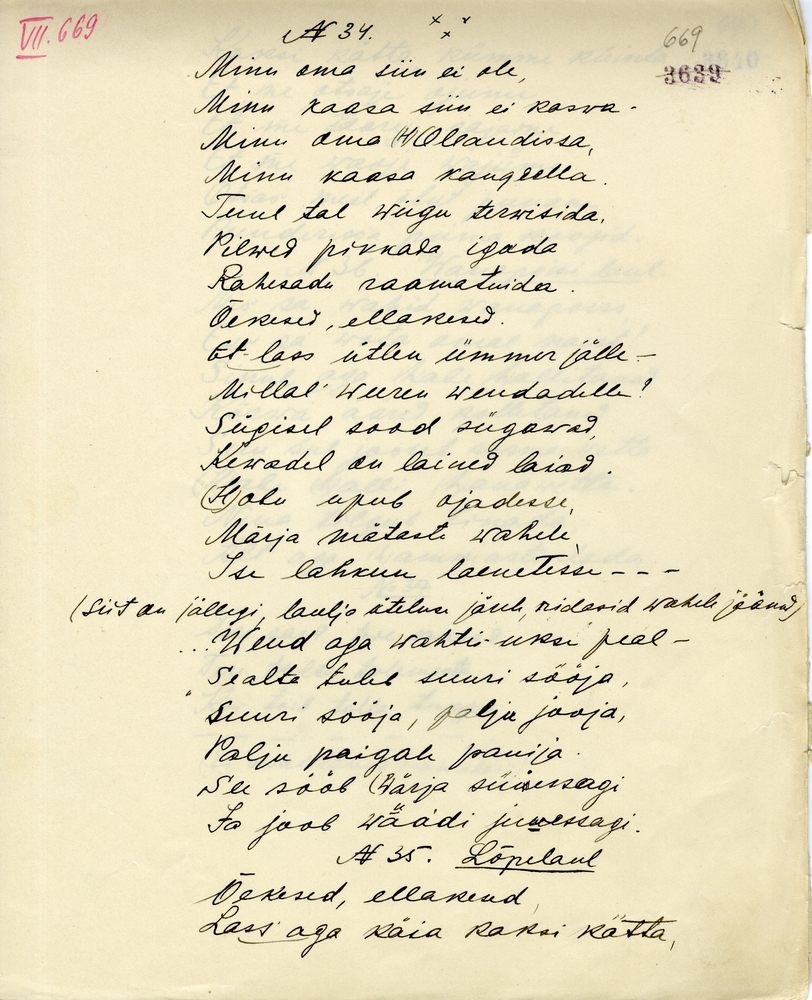 VII. 669
№ 34.
669
3639
Minu oma siin ei ole,
Minu kaasa siin ei kaswa -
Minu oma (H)Ollandissa,
Minu kaasa kaugeella.
Tuul tal wiigu terwisida,
Pilwed pikkada igada
Rahesadu raamatuida.
Õekesed, ellakesed.
Et lass ütlen ümmer jälle -
Millal weeren wendadelle?
Sügisel sood sügawad,
Kewadel on lained laiad.
(H)obu upub ojadesse,
Märja mätaste wahele,
Ise lahkun laenetesse - - -
(Siit on jällegi, laulja üteluse järele, ridasid wahele jäänud)
... Wend aga wahtis uksi peal -
"Sealta tuleb suuri sööja,
Suuri sööja, palju jooja,
Palju paigale panija.
See sööb (H)ärja süiessagi
Ja joob wäädi juuessagi.
№ 35. Lõpelaul
Õekesed, ellakend,
Lass aga käia kaksi kätta,